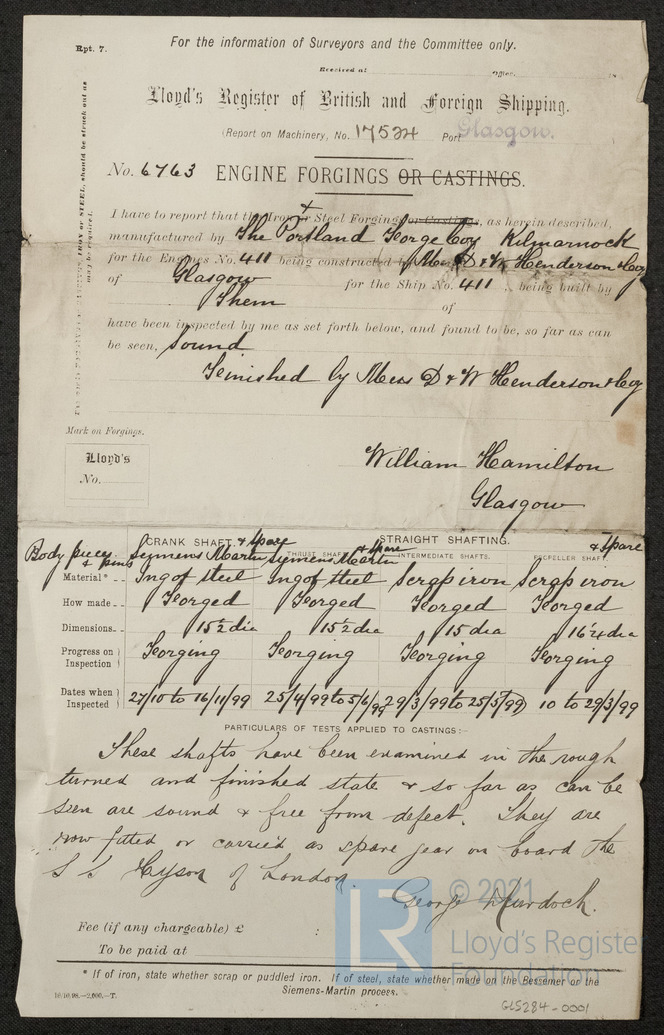 Rpt. 7.
For the information of Surveyors and the Committee only.
Received at Office,
Lloyd's Register of British and Foreign Shipping.
(Report on Machinery, No. 17534 Port Glasgow.
No. 6763 ENGINE FORGINGS OR CASTINGS.
IRON or STEEL, should be struck out as may be required.
I have to report that the Iron + or Steel Forgings or Castings, as herein described,
manufactured by The Portland Forge Coy Kilmarnock
for the Engines No. 411 being constructed by Mess D & W Henderson & Coy
of Glasgow for the Ship No. 411, being built by
Them of
have been inspected by me as set forth below, and found to be, so far as can
be seen, Sound
Finished by Mess D & W Henderson & Coy
Mark on Forgings.
Lloyd's
No.
William Hamilton
Glasgow
CRANK SHAFT. & Spare STRAIGHT SHAFTING.
Body pieces & pins Symens Martin THRUST SHAFT & Spare Symens Martin INTERMEDIATE SHAFTS. PROPELLER SHAFT. & Spare
Material* Ingot steel Ingot steel Scrap iron Scrap iron
How made Forged Forged Forged Forged
Dimensions 15½ dia 15½ dia 15 dia 16¼ dia
Progress on Inspection Forging Forging Forging Forging
Dates when Inspected 27/10 to 16/11/99 25/4/99 to 5/6/99 29/3/99 to 25/5/99 10 to 29/3/99
PARTICULARS OF TESTS APPLIED TO CASTINGS:-
These shafts have been examined in the rough
turned and finished state & so far as can be
seen are sound & free from defect. They are
now fitted or carried as spare gear on board the
S S Hyson of London.
George Murdoch.
Fee (if any chargeable) £
To be paid at
* If of iron, state whether scrap or puddled iron. If of steel, state whether made on the Bessemer or the
Siemens-Martin process.
10/10/98.—2,000.—T.
GLS284-0001
LR
© 2021
Lloyd's Registe
Foundation